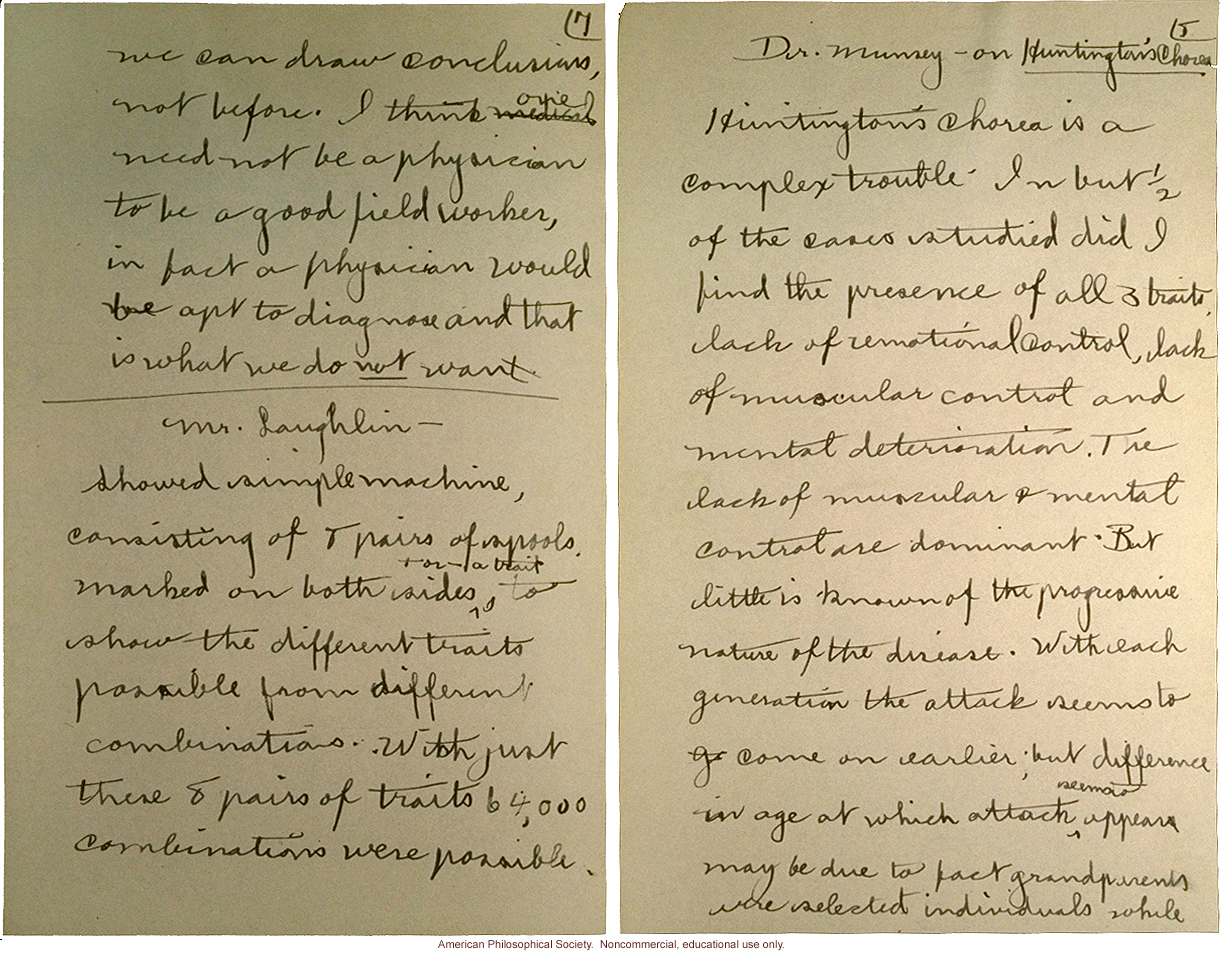 (7
we can draw conclusions,
not before. I think medical one
need not be a physician
to be a good field worker,
in fact a physician would
be apt to diagnose and that
is what we do not want.
Mr. Laughlin —
showed simple machine,
consisting of 8 pairs of spools
marked on both sides, + or - a trait to
show the different traits
possible from different
combinations. With just
these 8 pairs of traits 64,000
combinations were possible.
(5
Dr. Munsey - on Huntington's Chorea
Huntington's Chorea is a
complex trouble. In but 1/2
of the cases studied did I
find the presence of all 3 traits,
lack of emotional control, lack
of muscular control and
mental deterioration. The
lack of muscular & mental
control are dominant. But
little is known of the progressive
nature of the disease. With each
generation the attack seems to
go come on earlier; but difference
in age at which attack seems to appear
may be due to fact grandparents
were selected individuals while
American Philosophical Society. Noncommercial, educational use only.